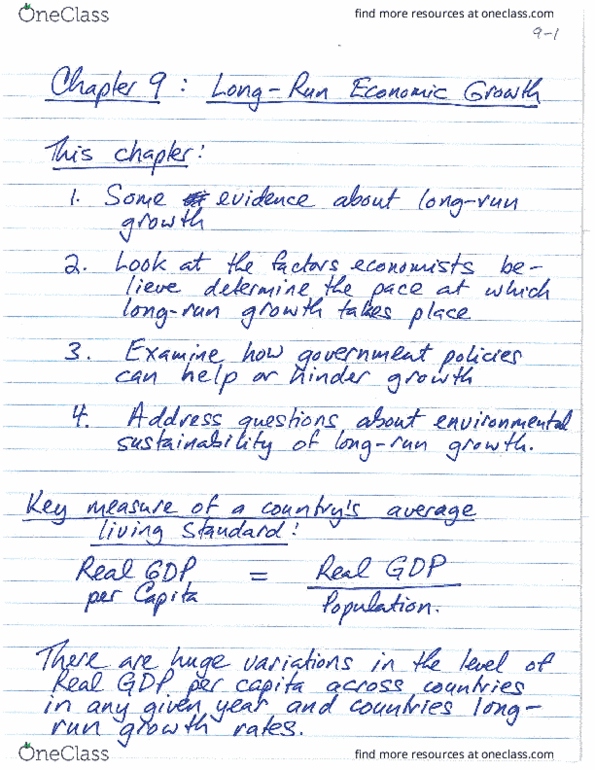 OneClass
find more resources at oneclass.com
9-1
Chapter 9 : Long-Run Economic Growth
This chapter:
1. Some evidence about long-run
growth
2. Look at the factors economists be-
lieve determine the pace at which
long-run growth takes place
3. Examine how government policies
can help or hinder growth
4. Address questions about environmental
sustainability of long-run growth.
Key measure of a country's average
living standard:
Real GDP = Real GDP
per Capita Population.
There are huge variations in the level of
Real GDP per capita across countries
in any given year and countries long-
run growth rates.
OneClass
find more resources at oneclass.com